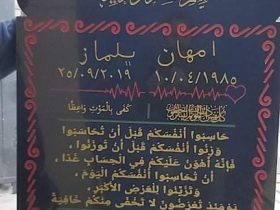 امهان يلماز
٢٥/٠٩/٢٠١٩ ١٠/٠٤/١٩٨٥
كفى بالموت واعظا
حاسبوا أنفسكم قبل أن تحاسبوا
وزنوا أنفسكم قبل أن توزنوا ،
فإنه أهون عليكم في الحساب غدا ،
أن تحاسبوا أنفسكم اليوم ،
وتزينوا للعرض الأكبر ،
يومئذ تعرضون لا تخفى منكم خافية